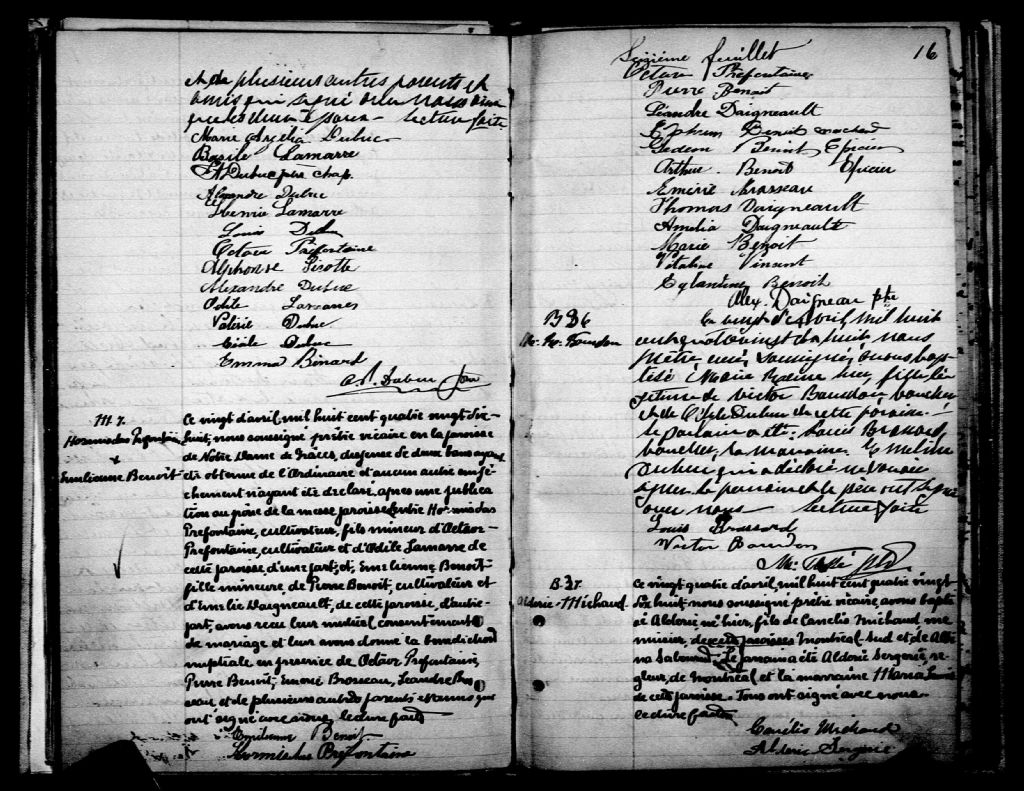 et de plusieurs autres parents et
amis qui signé avec nous ainsi
que les deux Epoux - lecture faite.
Marie Azélia Dubuc
Basile Lamarre
Dubuc ptre chap.
Alexandre Dubuc
Lamarre
Louis Dubuc
Octave Préfontaine
Alphonse Sicotte
Alexandre Dubuc
Odile
Valérie Dubuc
Cécile Dubuc
Emma Bénard
M 7.
Hormisdas Prefontaine
&
Emilienne Benoit
Ce vingt d'avril, mil huit cent quatre vingt dix-
huit, nous soussigné prêtre vicaire en la paroisse
de Notre Dame de Grâces, dispense de deux bans ayant
été obtenue de l'Ordinaire et aucun autre empê-
chement n'ayant été déclaré, après une publica
tion au prône de la messe paroissiale entre Hormisdas
Prefontaine, cultivateur, fils mineur d'Octave
Prefontaine, cultivateur et d'Odile Lamarre de
cette paroisse, d'une part; et, Emilienne Benoit
fille mineure de Pierre Benoit, cultivateur et
d'Emélie Daigneault, de cette paroisse, d'autre
part, avons reçu leur mutuel consentement
de mariage et leur avons donné la bénédiction
nuptiale en présence de Octave Prefontaine,
Pierre Benoit, Brosseau, Leandre
et de plusieurs autres parents et amis qui
ont signé avec nous, lecture faite
Emilienne Benoit
Hormisdas Préfontaine
16
Seizième feuillet
Octave Préfontaine
Pierre Benoit
Léandre Daigneault
Ephrem Benoit marchand
Gédéon Benoit Epicier
Arthur Benoit Epicier
Emérie Brosseau
Thomas Daigneault
Amelia Daigneault
Marie Benoit
Vitaline Vincent
Eglantine Benoit
Alex. Daigneau ptre
B 36
Bourdon
Le vingt d'avril, mil huit
cent quatre vingt dix huit nous
prêtre curé, soussigné, avons bap-
tisé Marie née, hier, fille lé
gitime de Victor Bourdon boucher
et de Dubuc de cette paroisse.
le parrain a été: Louis Brossard,
boucher, la marraine
Dubuc qui a déclaré ne savoir
signer. le parrain et le père ont signé
avec nous lecture faite
Louis Brossard
Victor Bourdon
B. 37.
Aldéric Michaud.
Ce vingt quatre d'avril, mil huit cent quatre vingt
dix huit nous soussigné prêtre vicaire, avons bapti
sé Aldéric né hier, fils de Camélis Michaud, me
nuisier de cette paroisse Montréal-Sud et de
Le parrain a été Aldéric Sergerie,
de Montréal et la marraine Maria
de cette paroisse. Tous ont signé avec nous
lecture faite
Camélis Michaud
Aldéric Sergerie